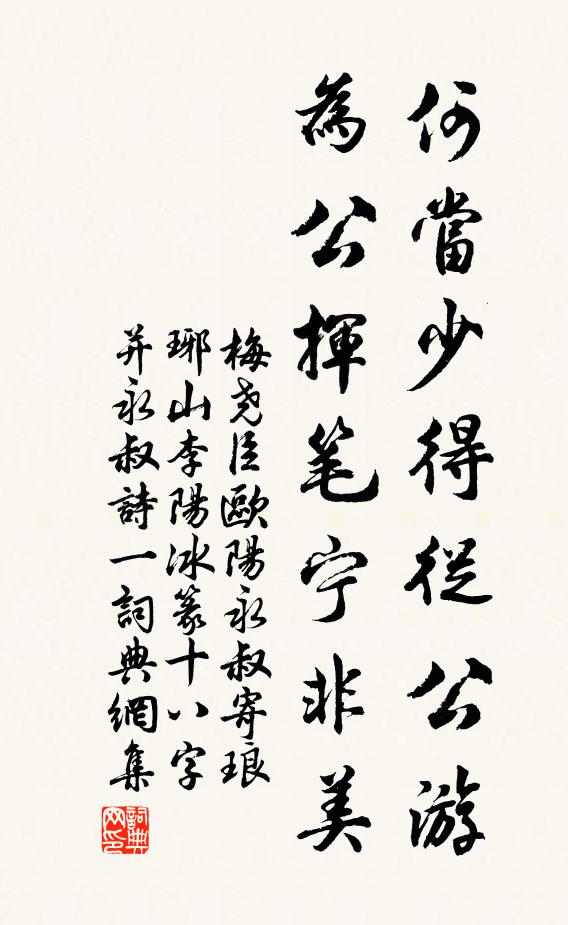 何當少得從公游
為公揮笔宁非美
梅尧臣歐陽永叔寄琅
琊山李陽冰篆十八字
并永叔詩一詞典網集
詞典
网印